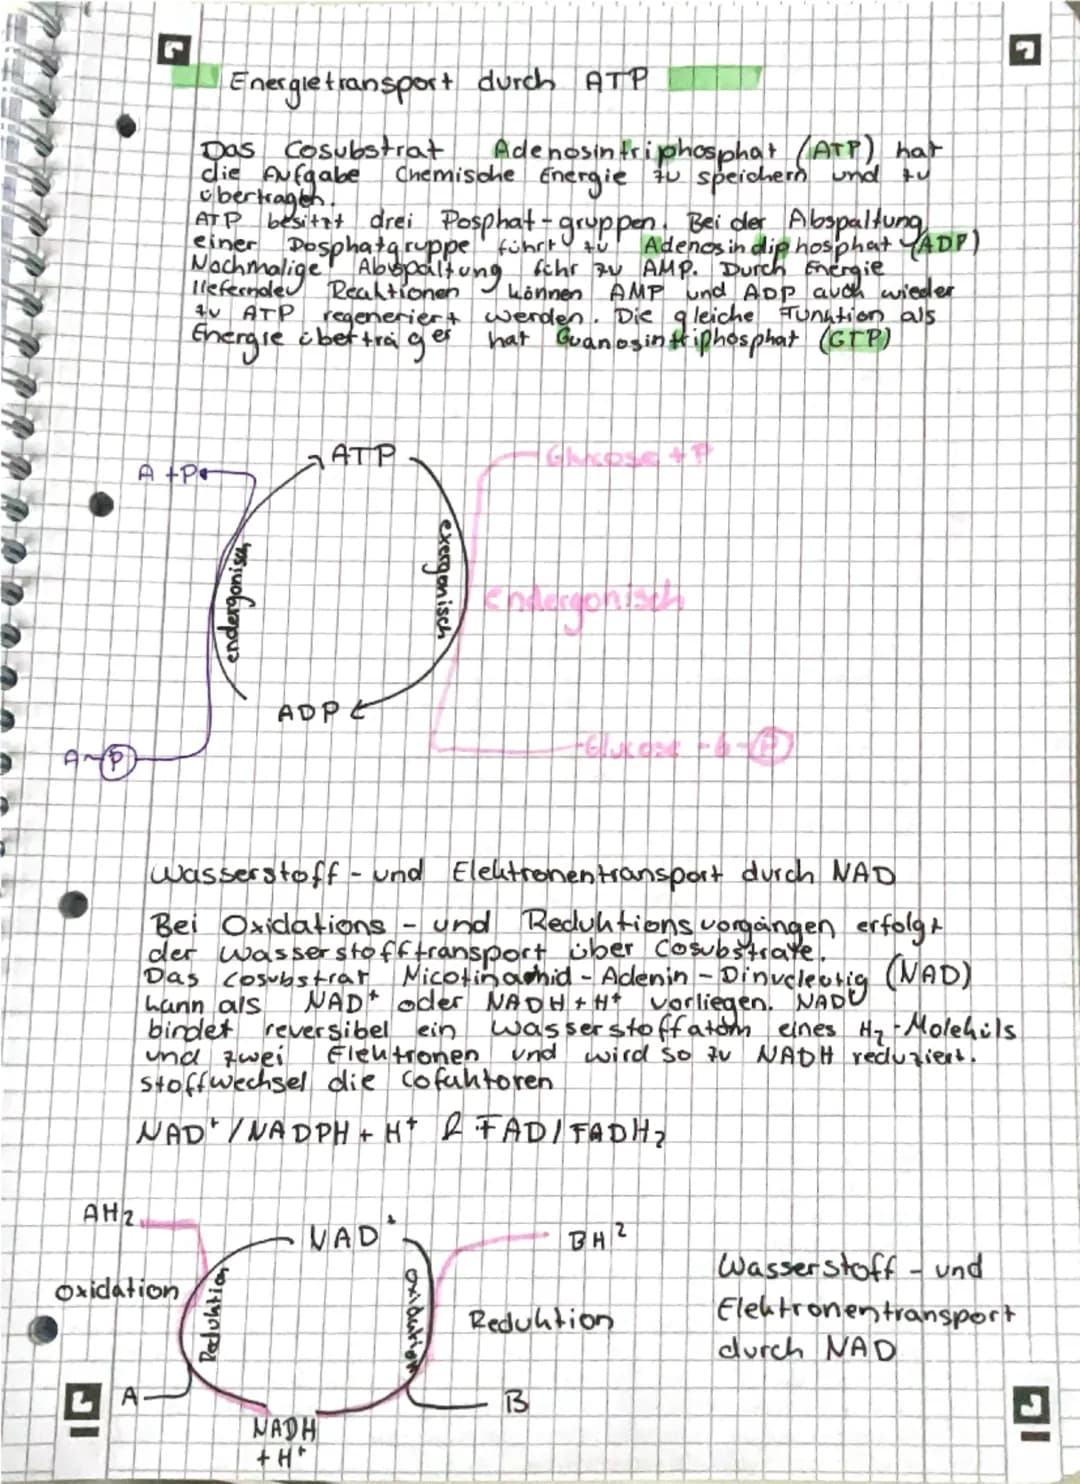 Energietransport durch ATP
Das Cosubstrat Adenosintriphosphat (ATP) hat
die Aufgabe Chemische Energie zu speichern und zu
übertragen.
ATP besitzt drei Posphat-gruppen. Bei der Abspaltung
einer Posphatgruppe führt zu Adenosindiphosphat (ADP)
Nochmalige Abspaltung führ zu AMP. Durch Energie
liefernde Reaktionen können AMP und ADP auch wieder
zu ATP regeneriert werden. Die gleiche Funktion als
Energie überträger hat Guanosintriphosphat (GTP)
ATP
Glucose + P
A + P
endergonisch
exergonisch
endergonisch
ADP
Glucose - 6 - P
A~P
Wasserstoff - und Elektronentransport durch NAD
Bei Oxidations - und Reduktionsvorgängen erfolgt
der Wasserstofftransport über Cosubstrate.
Das Cosubstrat Nicotinamid - Adenin - Dinucleotig (NAD)
kann als NAD+ oder NADH + H+ vorliegen. NAD
bindet reversibel ein Wasserstoffatom eines H2 - Moleküls
und zwei Elektronen und wird so zu NADH reduziert.
stoffwechsel die Cofaktoren
NAD+ / NADPH + H+ & FAD / FADH2
AH2
NAD+
BH2
Oxidation
Reduktion
Oxidation
Reduktion
Wasserstoff - und
Elektronentransport
durch NAD
A
B
NADH
+ H+